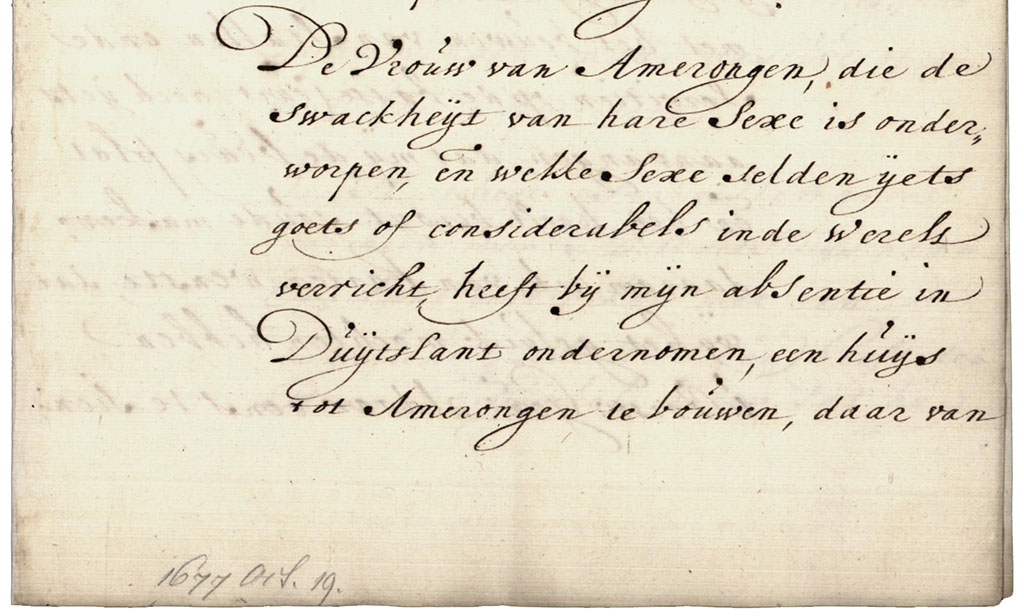 De Vrouw van Amerongen, die de
swackheijt van hare Sexe is onder„
worpen, en welke Sexe selden ijets
goets of considerabels inde werelt
verricht, heeft bij mijn absentie in
Duijtslant ondernomen, een huijs
tot Amerongen te bouwen, daar van
1677 Oct. 19.